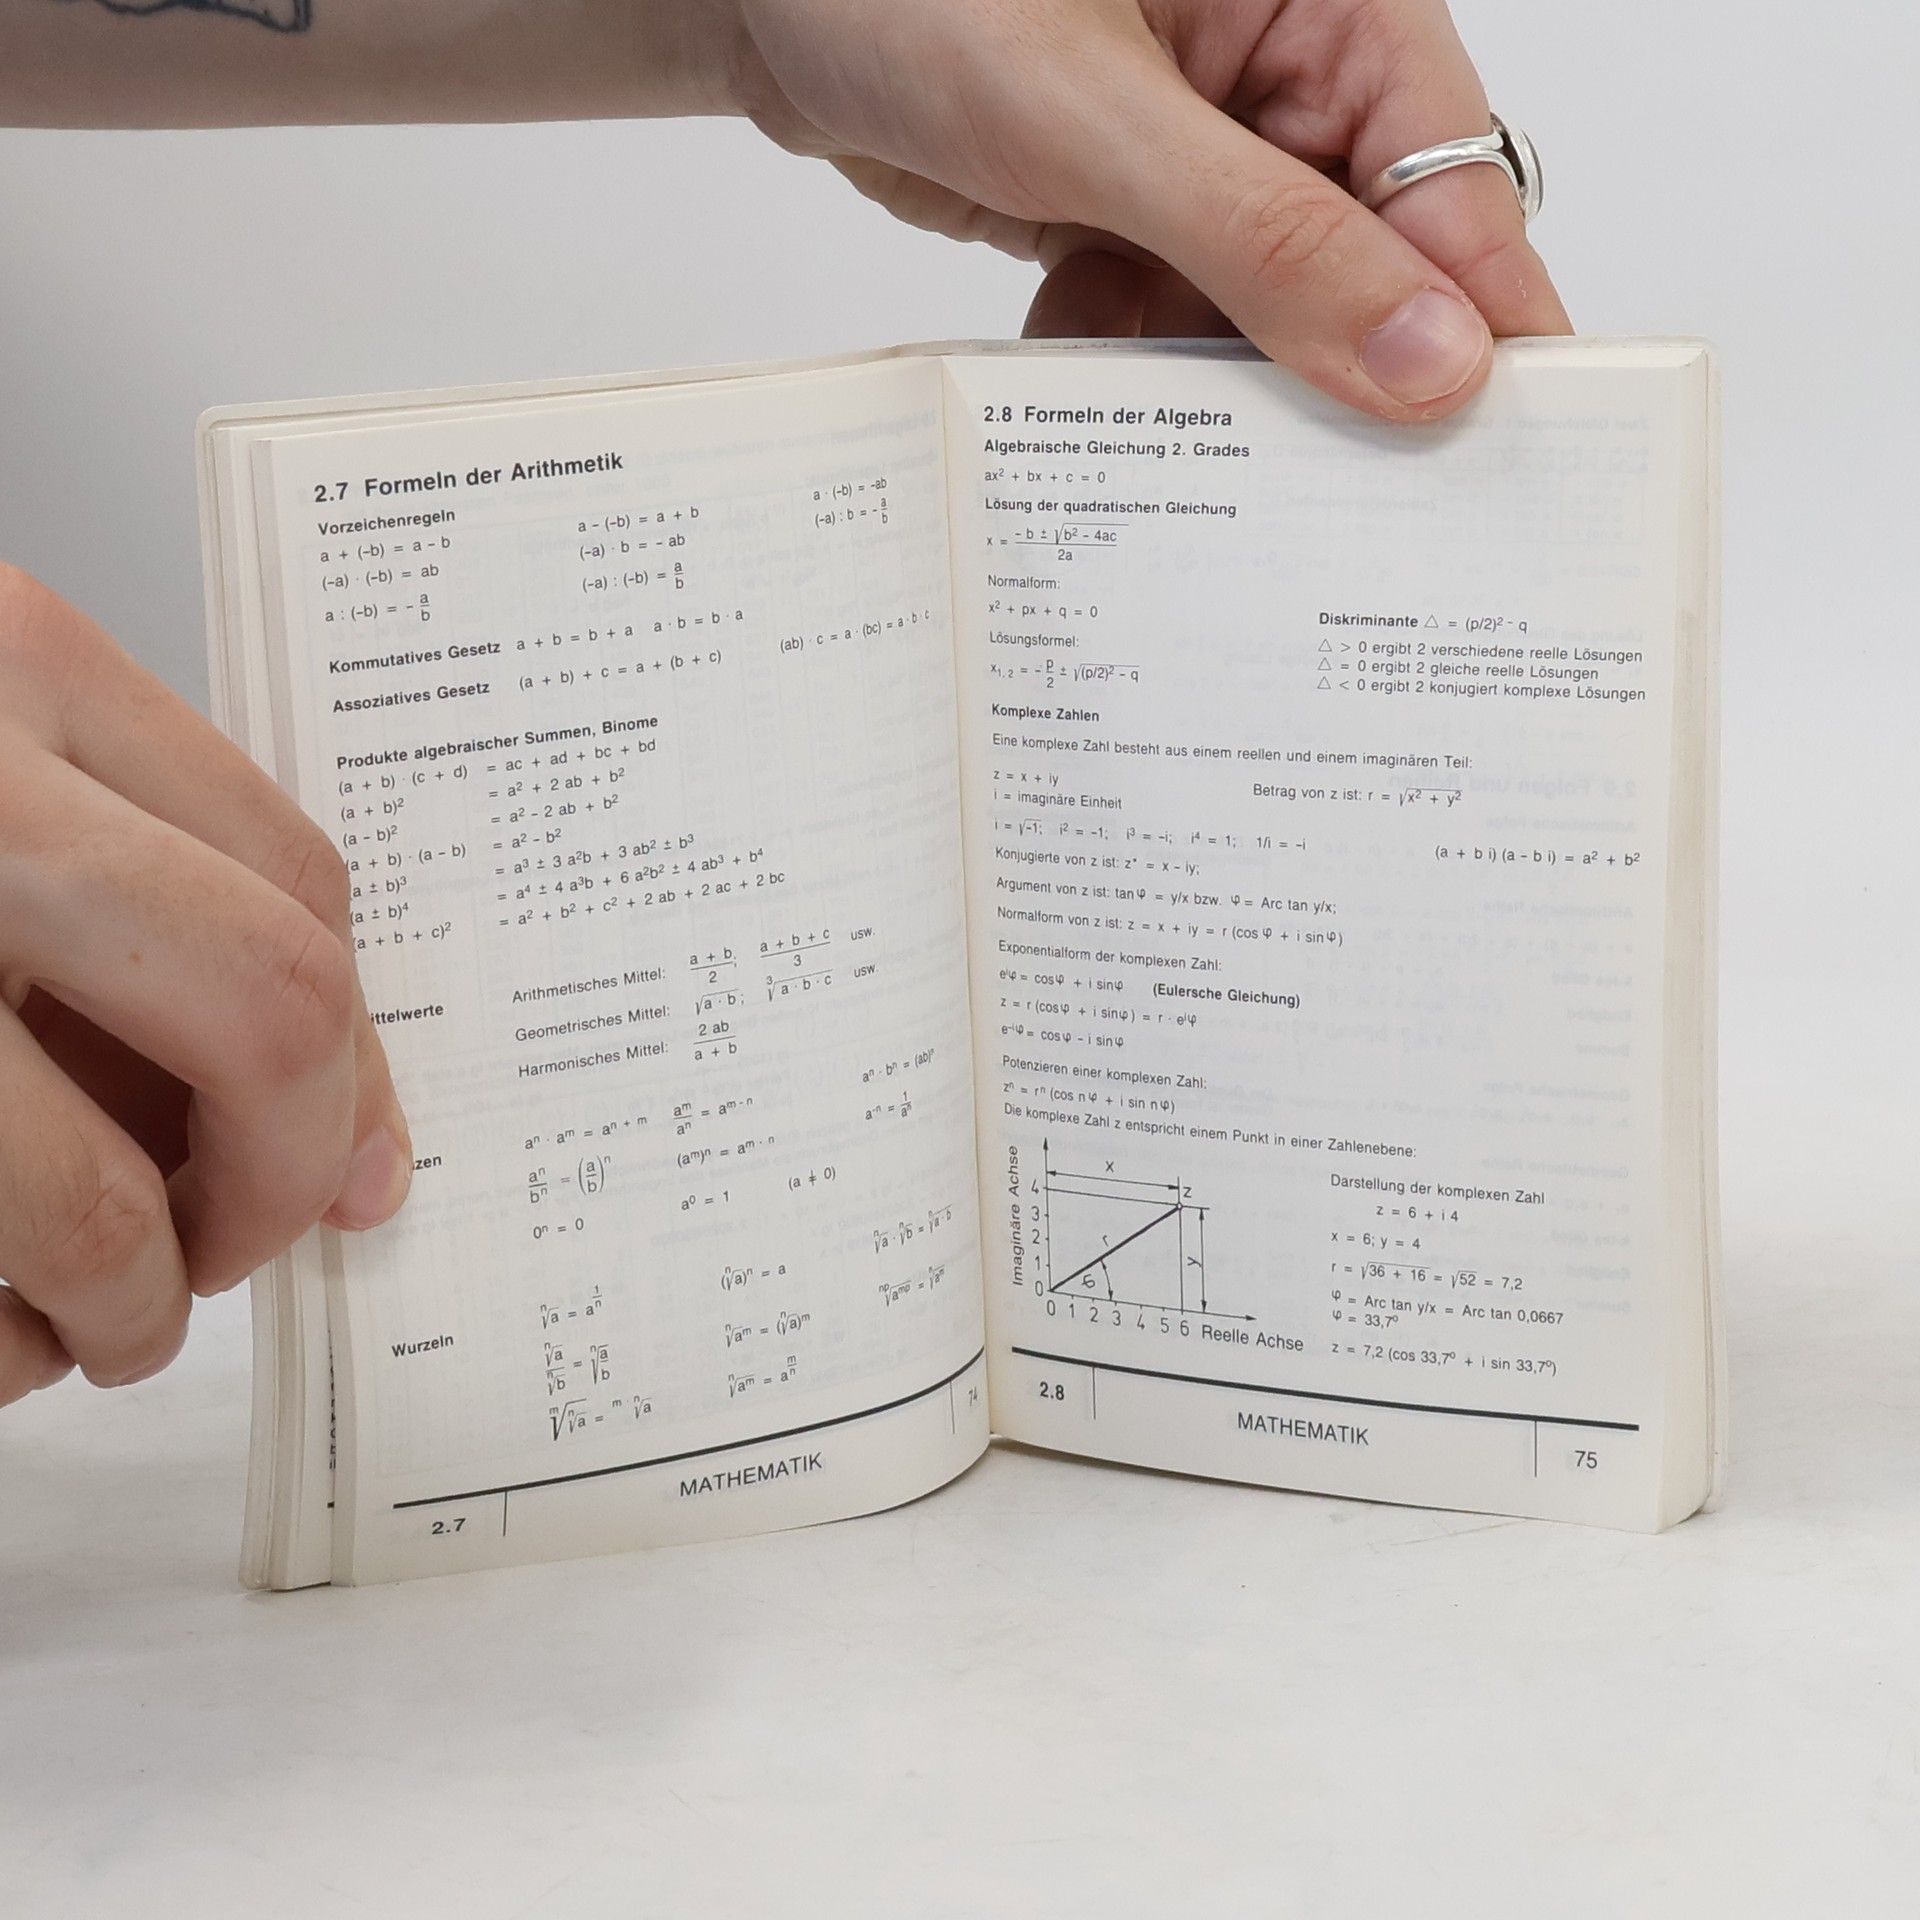 2.7 Formeln der Arithmetik
Vorzeichenregeln
a + (-b) = a - b    a - (-b) = a + b    a · (-b) = -ab
(-a) · (-b) = ab    (-a) · b = - ab    (-a) : b = - a/b
a : (-b) = - a/b    (-a) : (-b) = a/b
Kommutatives Gesetz    a + b = b + a    a · b = b · a
Assoziatives Gesetz    (a + b) + c = a + (b + c)    (ab) · c = a · (bc) = a · b · c
Produkte algebraischer Summen, Binome
(a + b) · (c + d) = ac + ad + bc + bd
(a + b)² = a² + 2 ab + b²
(a - b)² = a² - 2 ab + b²
(a + b) · (a - b) = a² - b²
(a ± b)³ = a³ ± 3 a²b + 3 ab² ± b³
(a ± b)⁴ = a⁴ ± 4 a³b + 6 a²b² ± 4 ab³ + b⁴
(a + b + c)² = a² + b² + c² + 2 ab + 2 ac + 2 bc
ittelwerte    Arithmetisches Mittel: (a + b)/2; (a + b + c)/3 usw.
Geometrisches Mittel: √(a · b); ³√(a · b · c) usw.
Harmonisches Mittel: 2 ab/(a + b)
zen    aⁿ · aᵐ = aⁿ ⁺ ᵐ    aᵐ/aⁿ = aᵐ ⁻ ⁿ    aⁿ · bⁿ = (ab)ⁿ
aⁿ/bⁿ = (a/b)ⁿ    (aᵐ)ⁿ = aᵐ · ⁿ    a⁻ⁿ = 1/aⁿ
0ⁿ = 0    a⁰ = 1    (a ≠ 0)
Wurzeln    ⁿ√a = a^(1/n)    (ⁿ√a)ⁿ = a    ⁿ√a · ⁿ√b = ⁿ√(a · b)
ⁿ√a/ⁿ√b = ⁿ√(a/b)    ⁿ√aᵐ = (ⁿ√a)ᵐ    ⁿᵖ√aᵐᵖ = ⁿ√aᵐ
ᵐ√(ⁿ√a) = ᵐ ⁿ√a    ⁿ√aᵐ = a^(m/n)
2.7    MATHEMATIK    74
2.8 Formeln der Algebra
Algebraische Gleichung 2. Grades
ax² + bx + c = 0
Lösung der quadratischen Gleichung
x = (- b ± √(b² - 4ac))/2a
Normalform:
x² + px + q = 0    Diskriminante △ = (p/2)² - q
Lösungsformel:    △ > 0 ergibt 2 verschiedene reelle Lösungen
△ = 0 ergibt 2 gleiche reelle Lösungen
x₁,₂ = - p/2 ± √((p/2)² - q)    △ < 0 ergibt 2 konjugiert komplexe Lösungen
Komplexe Zahlen
Eine komplexe Zahl besteht aus einem reellen und einem imaginären Teil:
z = x + iy    Betrag von z ist: r = √(x² + y²)
i = imaginäre Einheit
i = √-1; i² = -1; i³ = -i; i⁴ = 1; 1/i = -i    (a + b i) (a - b i) = a² + b²
Konjugierte von z ist: z* = x - iy;
Argument von z ist: tan φ = y/x bzw. φ = Arc tan y/x;
Normalform von z ist: z = x + iy = r (cos φ + i sin φ)
Exponentialform der komplexen Zahl:
e^(iφ) = cos φ + i sin φ    (Eulersche Gleichung)
z = r (cos φ + i sin φ) = r · e^(iφ)
e^(-iφ) = cos φ - i sin φ
Potenzieren einer komplexen Zahl:
zⁿ = rⁿ (cos n φ + i sin n φ)
Die komplexe Zahl z entspricht einem Punkt in einer Zahlenebene:
Imaginäre Achse
4
3
2
1
0
x
z
r
y
φ
0 1 2 3 4 5 6 Reelle Achse
Darstellung der komplexen Zahl
z = 6 + i 4
x = 6; y = 4
r = √(36 + 16) = √52 = 7,2
φ = Arc tan y/x = Arc tan 0,0667
φ = 33,7°
z = 7,2 (cos 33,7° + i sin 33,7°)
2.8    MATHEMATIK    75